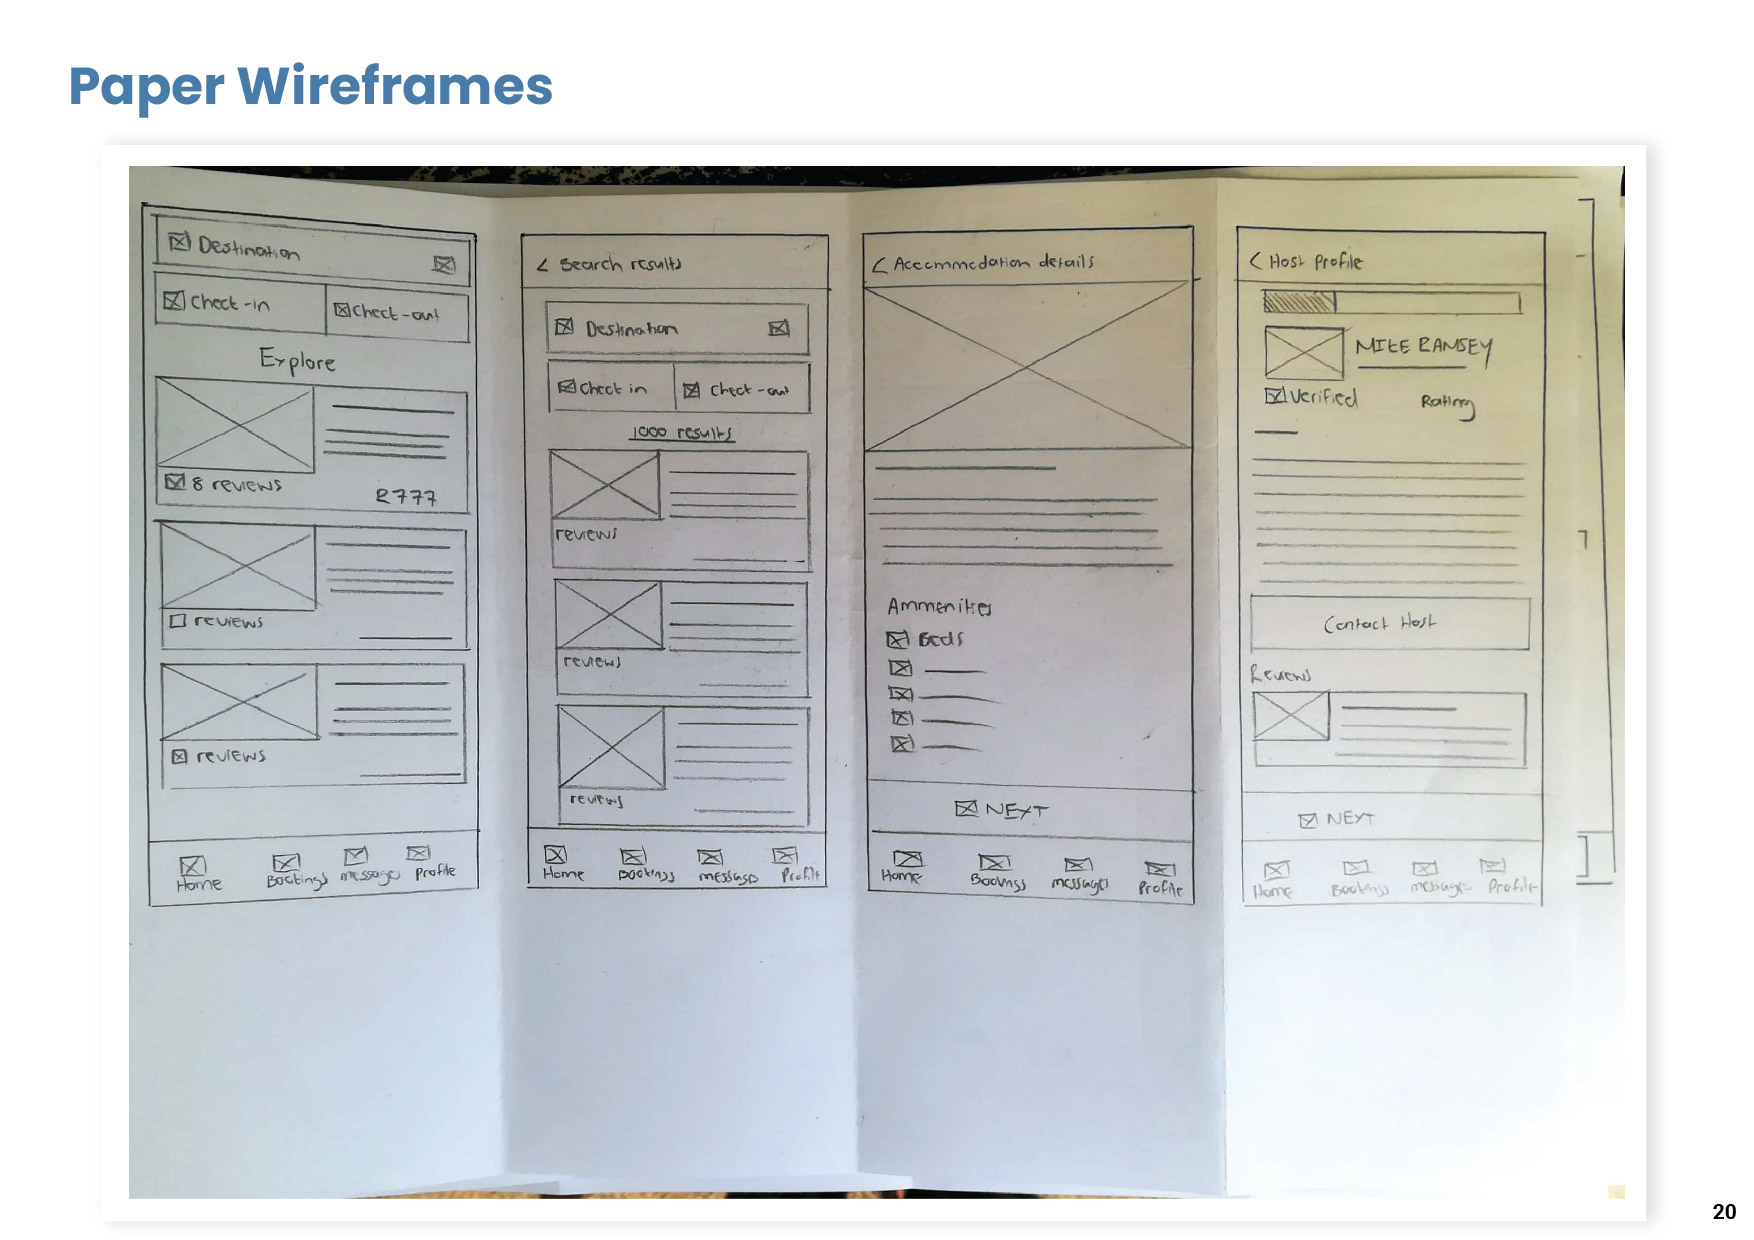 Paper Wireframes
Destination
Check-in
Check-out
Explore
8 reviews
R777
reviews
reviews
Home
Bookings
messages
Profile
< Search results
Destination
Check in
Check-out
1000 results
reviews
reviews
reviews
Home
Bookings
messages
Profile
< Accommodation details
Ammenities
Beds
NEXT
Home
Bookings
messages
Profile
< Host Profile
MIKE RAMSEY
Verified
Rating
Contact Host
Reviews
NEXT
Home
Bookings
messages
Profile
20